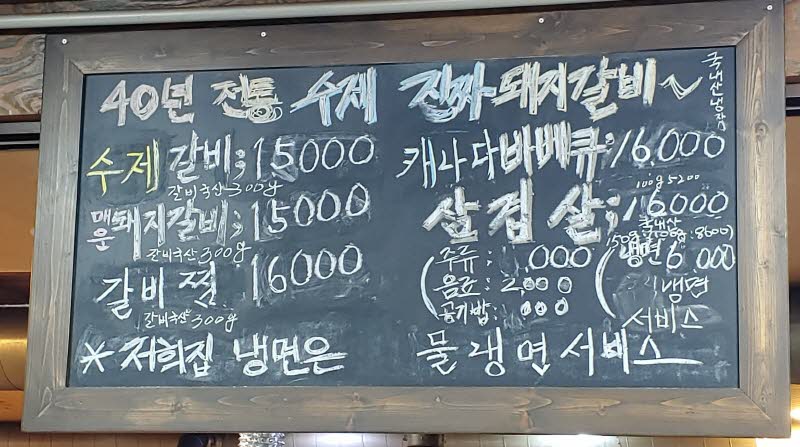 40년 전통 수제 진짜 돼지갈비~
국내산냉장
수제 갈비; 15000
갈비국산 300g
매운 돼지갈비; 15000
갈비국산 300g
갈비찜 16000
갈비국산 300g
캐나다 바베큐: 16.000
100g 5200
삼겹살; 16000
국내산
150g (100g: 8600)
주류: ,000
음료: 2,000
공기밥:
냉면 6 000
냉면
서비스
* 저희집 냉면은 물냉면서비스